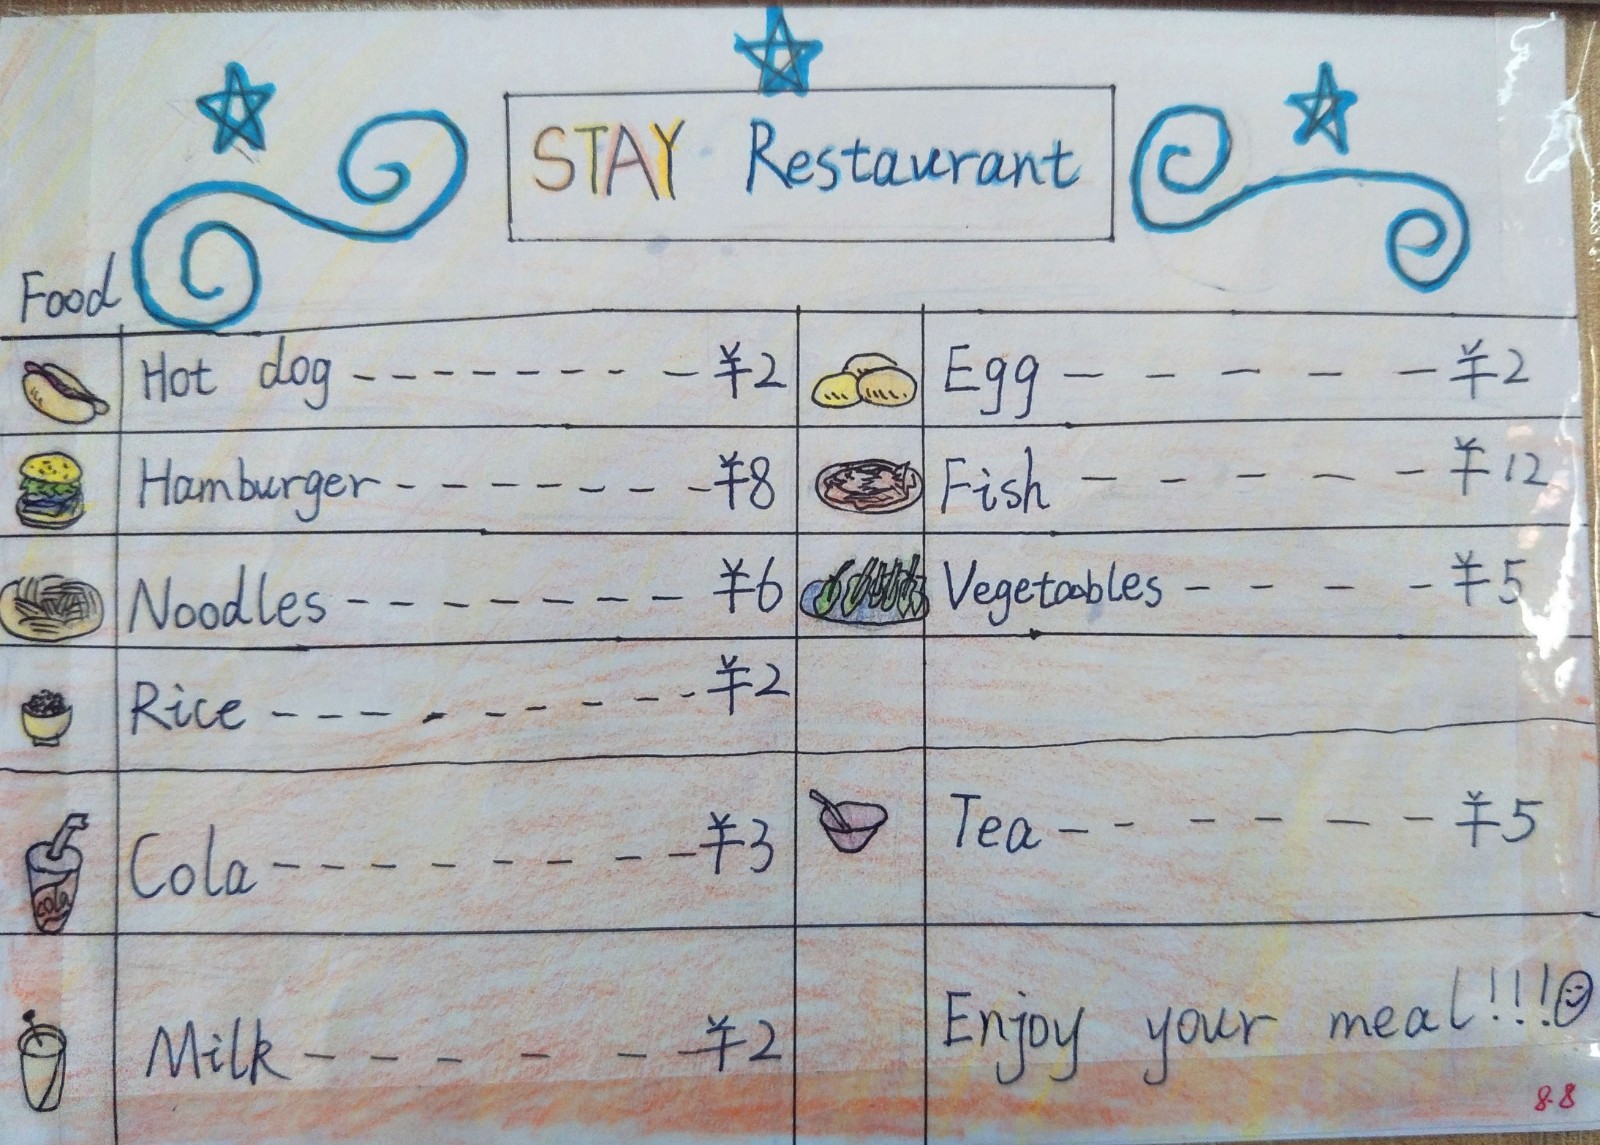 STAY Restaurant
Food
Hot dog - - - - - - - - - ¥2
Egg - - - - - ¥2
Hamburger - - - - - - - - ¥8
Fish - - - - - ¥12
Noodles - - - - - - - - ¥6
Vegetoables - - - - ¥5
Rice - - - - - - - - - ¥2
Cola - - - - - - - - - ¥3
cola
Tea - - - - - - ¥5
Milk - - - - - - ¥2
Enjoy your meal!!!
8.8